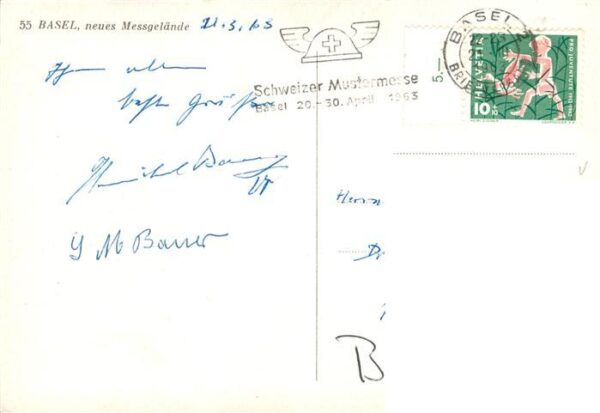 55 BASEL, neues Messgelände 21.3.63
Schweizer Mustermesse
Basel 20.–30. April 1963
BASEL 2
BRIEF
5.—
HELVETIA
PRO JUVENTUTE 1912-1962
10+
Ihnen allen
beste Grüsse
Y M Bauer
Herrn
D
B